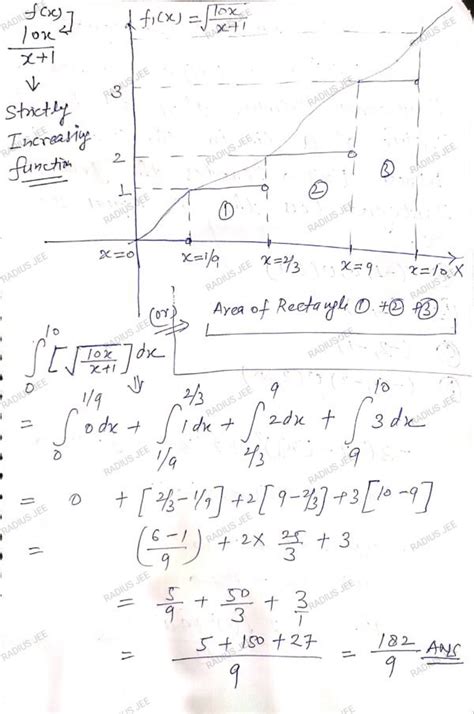 f(x)
10x/(x+1)
↓
Strictly
Increasing
function
f₁(x) = √(10x/(x+1))
3
2
1
① ② ③
x=0 x=1/9 x=2/3 x=9 x=10 X
(or) ⇒ Area of Rectangle ① + ② + ③
∫₀¹⁰ [√(10x/(x+1))] dx
= ∫₀^(1/9) 0 dx + ∫_(1/9)^(2/3) 1 dx + ∫_(2/3)^9 2 dx + ∫₉¹⁰ 3 dx
= 0 + [2/3 - 1/9] + 2[9 - 2/3] + 3[10 - 9]
= (6-1/9) + 2 × 25/3 + 3
= 5/9 + 50/3 + 3/1
= (5 + 150 + 27)/9 = 182/9 Ans
RADIUS JEE